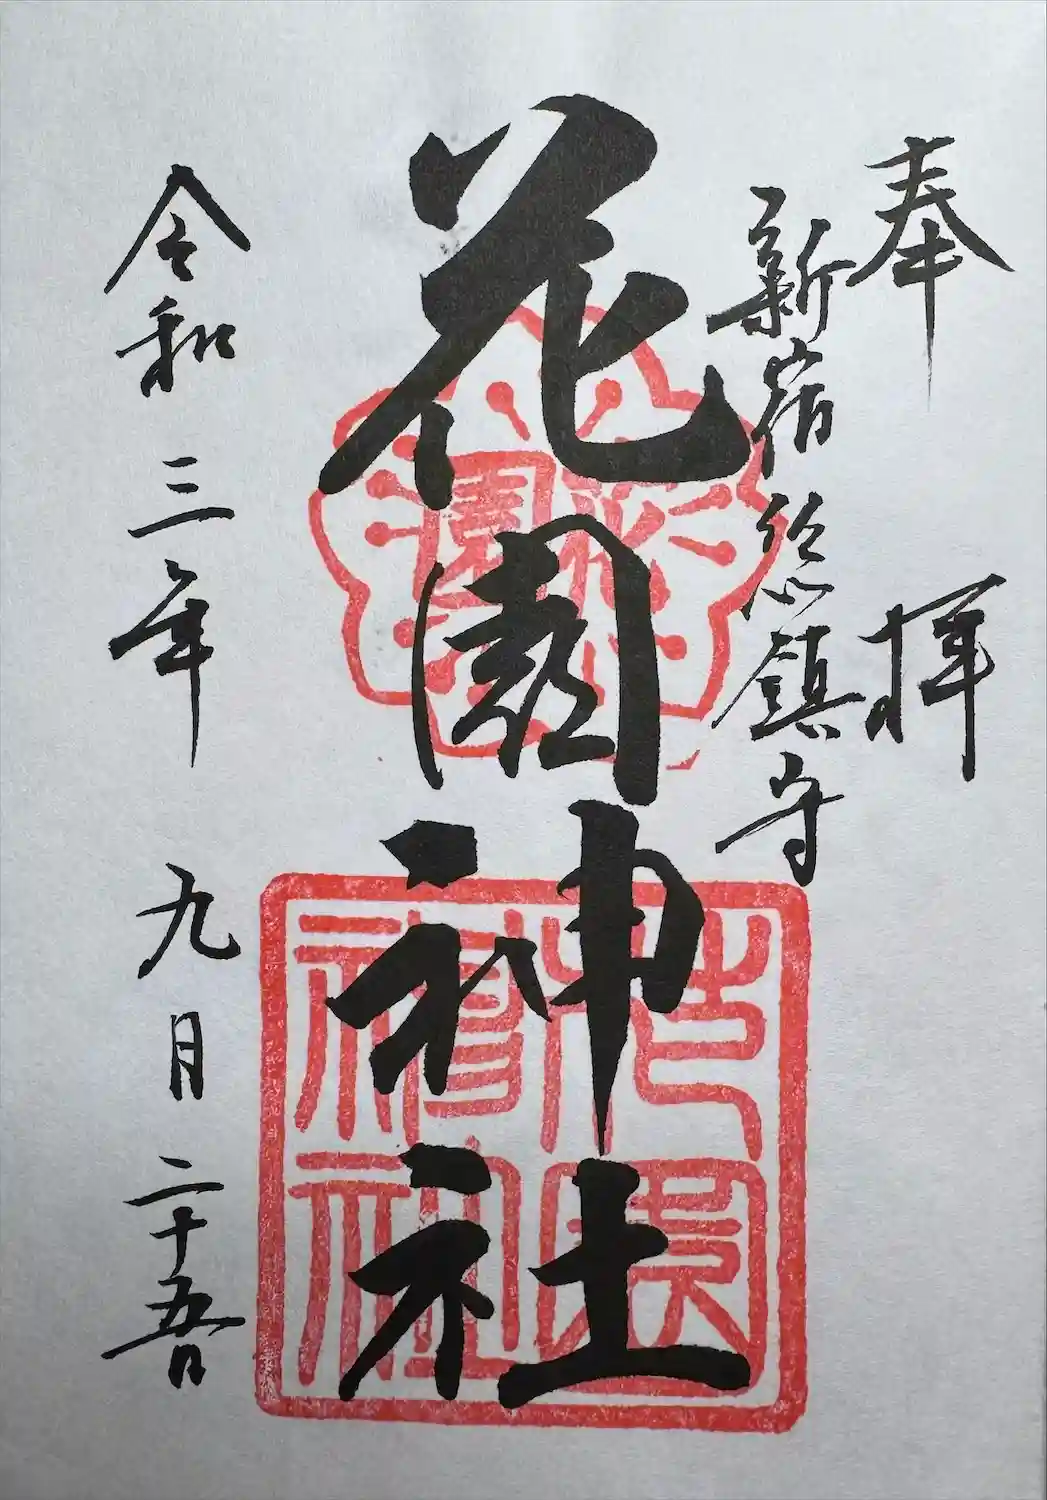 奉拝
新宿総鎮守
花園神社
令和三年九月二十五日
花園
花園神社